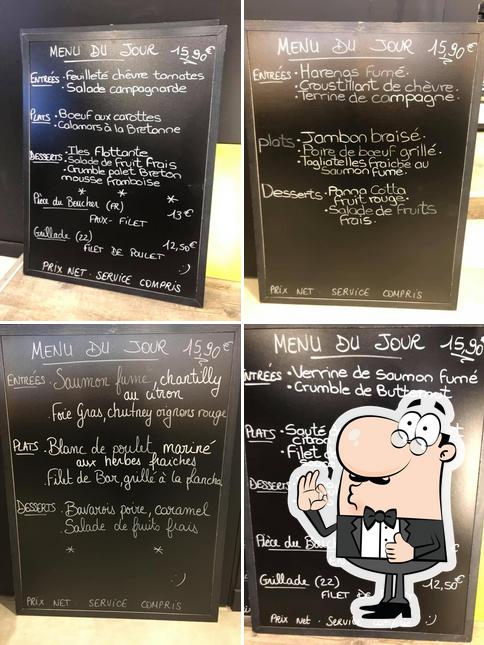 MENU DU JOUR 15,90€
ENTRÉES · Feuilleté chèvre tomates
· Salade campagnarde
PLATS · Boeuf aux carottes
· Calamars à la Bretonne
DESSERTS · Iles Flottante
· Salade de Fruit Frais
· Crumble palet Breton
mousse framboise
* * *
Pièce du Boucher (FR)
13€
FAUX-FILET
Grillade (22)
12,50€
FILET DE POULET
:)
PRIX NET. SERVICE COMPRIS
MENU DU JOUR 15,90€
ENTRÉES · Harengs Fumé.
· Croustillant de chèvre.
· Terrine de campagne.
plats · Jambon braisé.
· Poire de bœuf grillé.
· Tagliatelles fraiche au
Saumon fumé.
Desserts · Panna Cotta
fruit rouge.
· Salade de Fruits
frais.
PRIX NET. SERVICE COMPRIS
MENU DU JOUR 15,90€
ENTRÉES · Saumon fumé, chantilly
au citron
· Foie Gras, chutney oignons rouge
PLATS · Blanc de poulet, mariné
aux herbes fraîches
· Filet de Bar, grillé à la plancha
DESSERTS · Bavarois poire, caramel
· Salade de fruits frais
* *
:)
PRIX NET SERVICE COMPRIS
MENU DU JOUR 15,90€
ENTRÉES · Verrine de Saumon fumé
· Crumble de
PLATS · Sauté
· Filet
Pièce du
Grillade (22)
12,50€
FILET DE
PRIX NET. SERVICE
:)